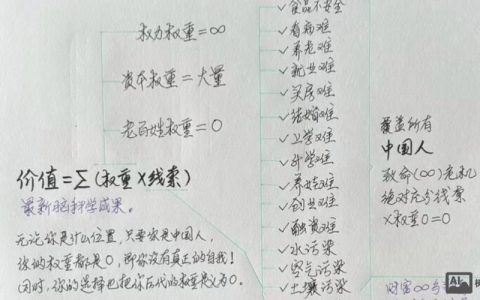 权力权重=∞
资本权重=大量
老百姓权重=0
价值=Σ(权重×线索)
最新脑科学成果。
无论你是什么位置,只要你是中国人,
你的权重都是0,即你没有真正的自我!
同时,你的选择已把你后代的权重定义为0。
✓食品不安全
✓看病难
✓养老难
✓就业难
✓买房难
✓结婚难
✓上学难
✓升学难
✓养娃难
✓创业难
✓融资难
✓水污染
✓空气污染
✓土壤污染
覆盖所有
中国人
致命(∞)危机
绝对充分线索
×权重0=0
AI